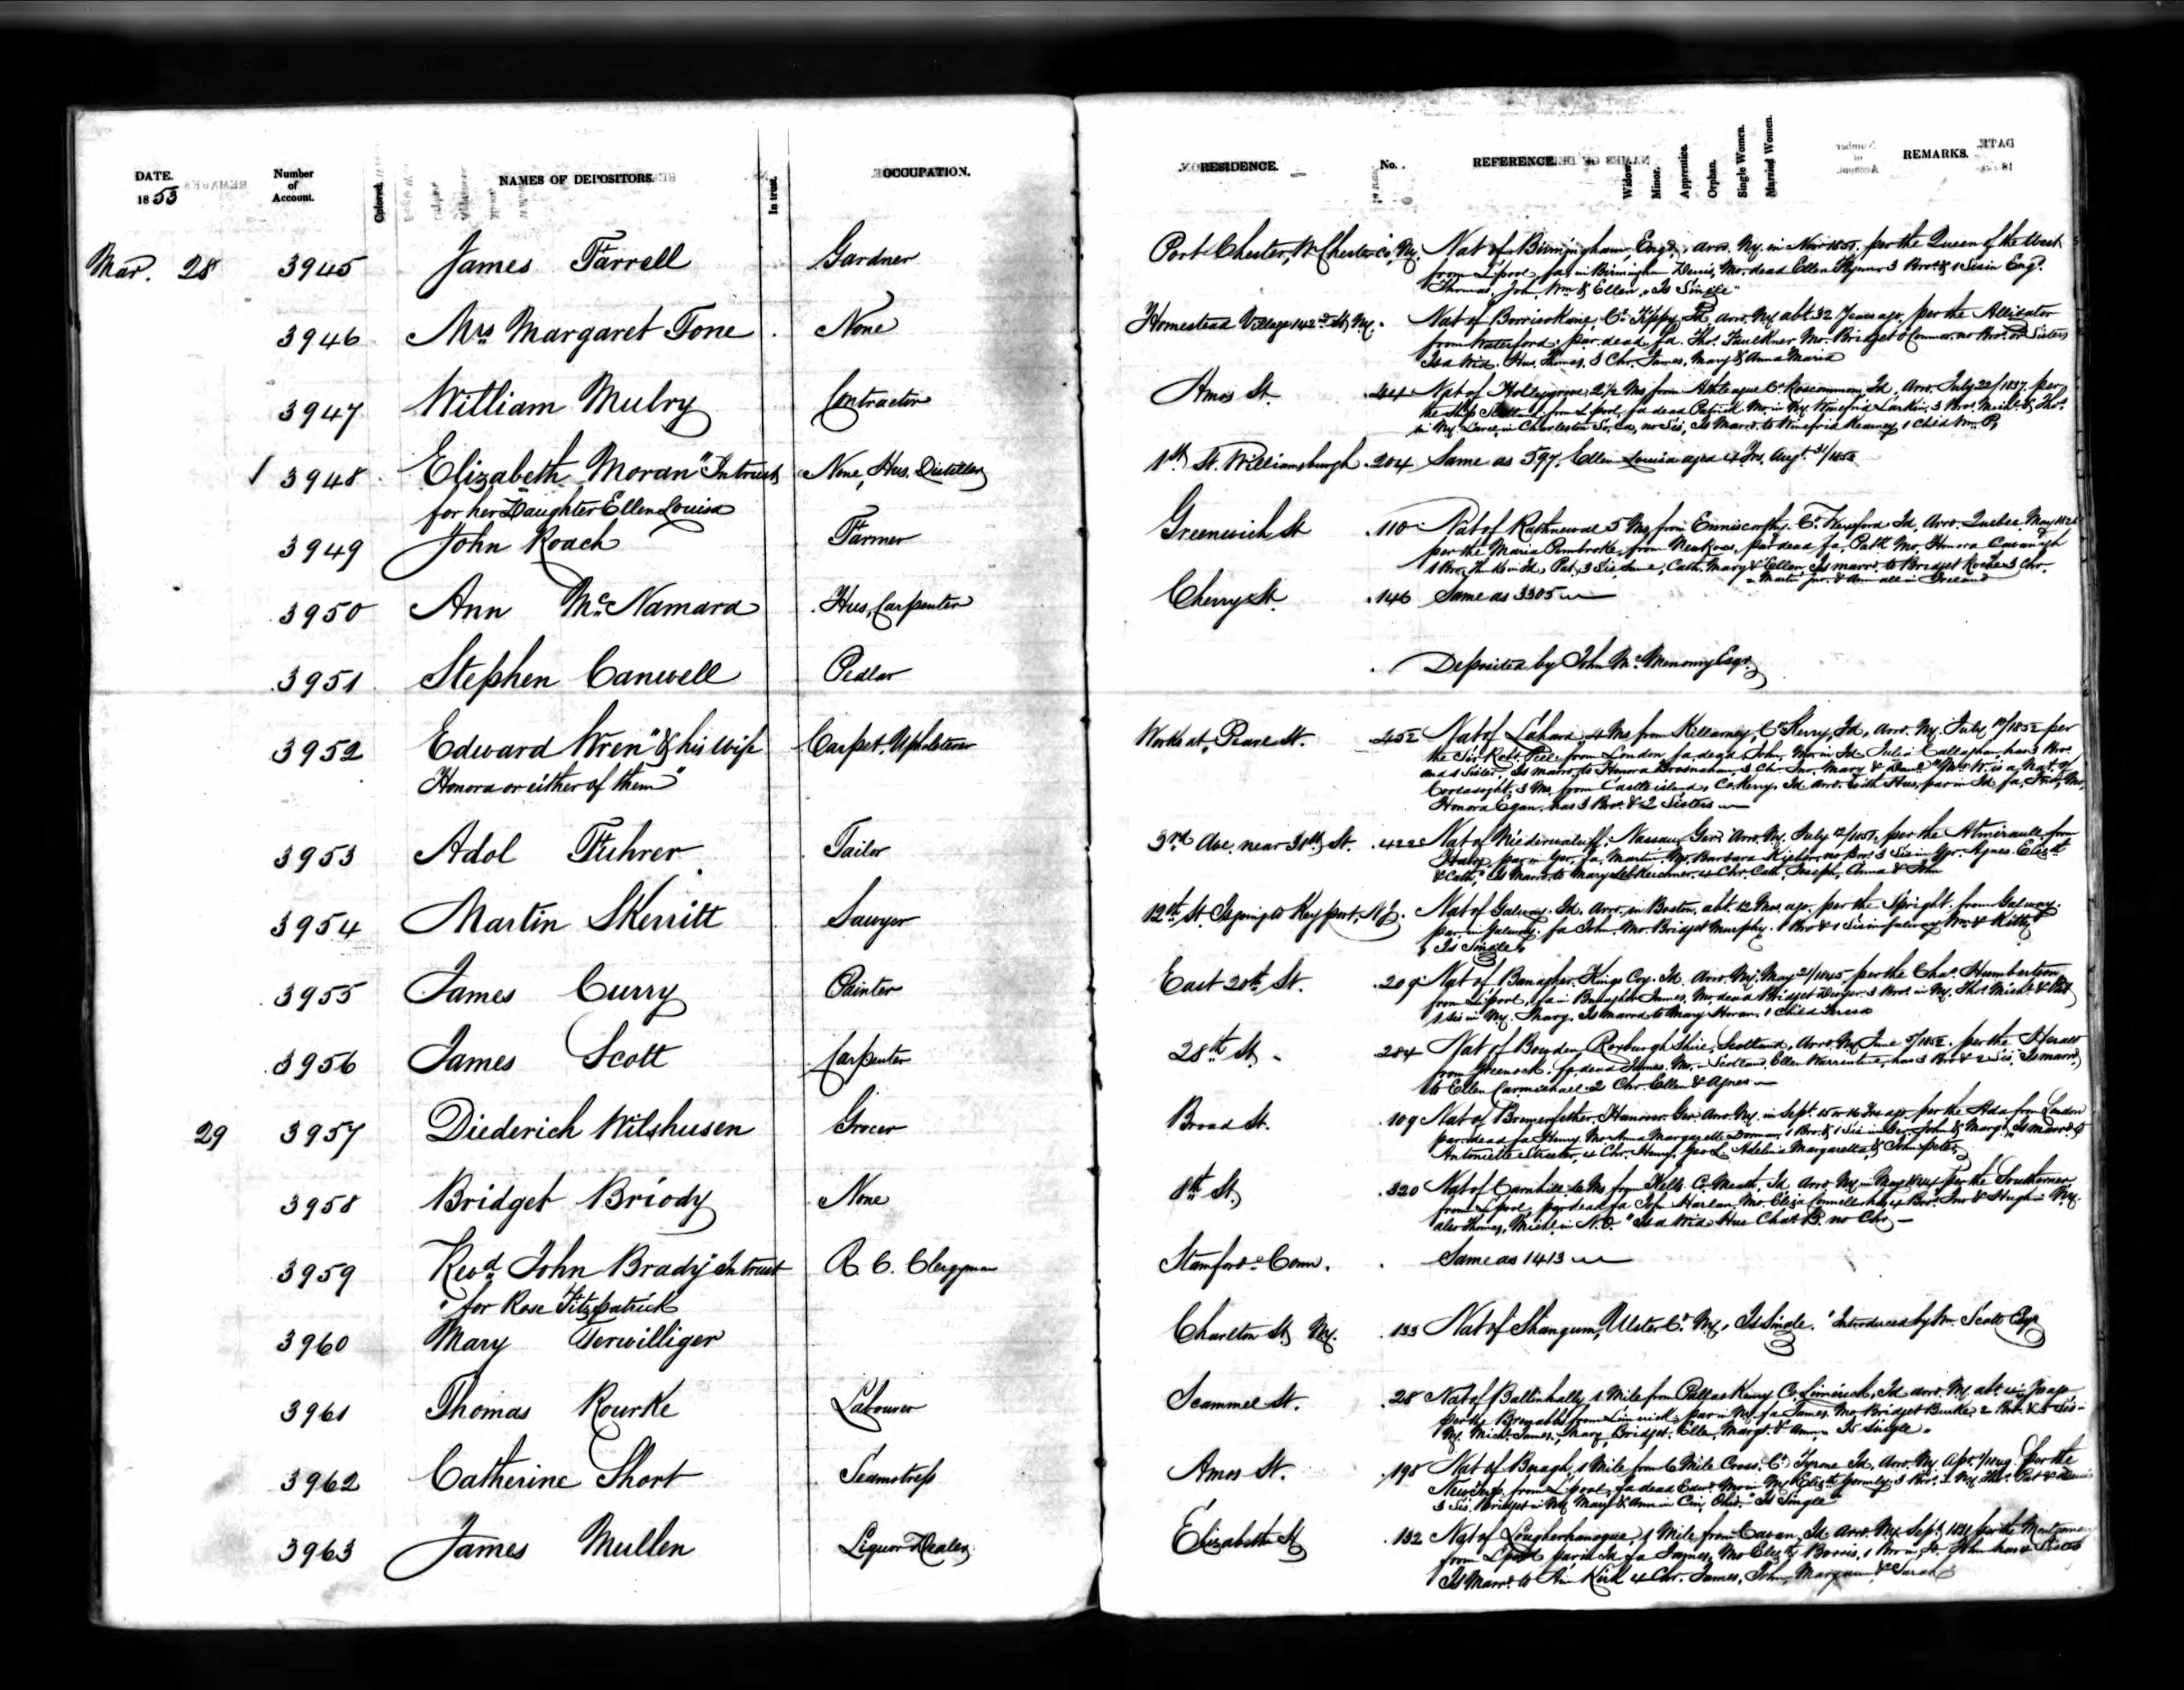 DATE. Number of Account. Colored. NAMES OF DEPOSITORS. In trust. OCCUPATION. RESIDENCE. No. REFERENCE. Widow. Minor. Apprentice. Orphan. Single Women. Married Women. REMARKS.
1853
Mar. 28 3945 James Farrell Gardner Port Chester, W. Chester Co, Ny. Nat of Birmingham, Engd, arrd. Ny. in Novr 1851. per the Queen of the West
from L'pool, fa in Birmingham Denis, Mo. dead Ellen Flynn. 3 Bros. & 1 Sis in Engd.
Thomas, John, Wm & Ellen, "Is Single"
3946 Mrs Margaret Tone None Homestead Village 142nd St Ny. Nat of Borrisokane, Co. Tippy Id, arrd. Ny abt. 32 Years ago, per the Alligator
from Waterford. par. dead. fa. Thos. Faulkner Mo. Bridget O'Connor. no Bros. or Sisters
Is a Wid. Hus. Thomas, 3 Chr. James, Mary & Anna Maria
3947 William Mulry Contractor Amos St. 44 Nat of Hollygrove 2 1/2 Ms from Athleague Co. Roscommon, Id, Arrd. July 22/1837. per
the Ship from L'pool, fa dead Patrick. Mo. in Ny. Winefrid Larkin, 3 Bros. Michl. & Thos.
in Ny. in Charleston So. Ca, no Sis, Is Marrd. to Winefrid Kearney, 1 Child Wm. P.
3948 Elizabeth Moran "In trust None, Hus. Distiller 1st St. Williamsburgh 204 Same as 597. Ellen Louisa aged 4 Yrs, Augt. 31/1852
for her Daughter Ellen Louisa
3949 John Roach Farmer Greenwich St 110 Nat of 5 Ms from Enniscorthy. Co. Wexford Id, Arrd. Quebec May
per the Maria Pembroke, from Ross, par dead fa. Patk Mo. Honora Cavanagh
1 Bro. in Id, Pat. 3 Sis. Cath. Mary & Ellen, Is marrd. to Bridget Roche 3 Chr.
Martin & Ann all in Ireland
3950 Ann McNamara Hus, Carpenter Cherry St. 146 Same as 3305
3951 Stephen Canwell Pedlar Deposited by John McMenomy Esqr.
3952 Edward Wren "& his wife Carpet. Upholsterer Works at, Pearl St. 452 Nat of Lahard 4 Ms from Killarney, Co Kerry, Id, Arrd. Ny. July 19/1852 per
Honora or either of them" the Sir Robt. Peel from London, fa dead John, Mo in Id. Julia Callaghan, has 3 Bros
and 1 Sister, Is marrd. to Honora Brosnahan, 3 Chr. Jno. Mary & "Mrs W. is a Nat of
3 Ms. from Castle island, Co. Kerry, Id arrd. with Hus, par in Id fa, Mo,
Honora Egan, has 3 Bros. & 2 Sisters
3953 Adol Fuhrer Tailor 3rd Ave. near St. 422 Nat of Nassau, Ger. Arrd. Ny. July 12/1851, per the from
par in Ger. fa. Martin. Mo. Barbara no Bros. 3 Sis in Ger. Agnes. Elizth
& Cath, Is Marrd. to Mary 4 Chr. Cath, Joseph, Anna & John
3954 Martin Skerritt Sawyer 12th St. Is going to Keyport, N.J. Nat of Galway. Id. Arrd. in Boston, abt. 12 Mos. ago. per the Spright. from Galway.
par in Galway. fa John. Mo. Bridget Murphy. 1 Bro & 1 Sis in Galway Wm. & Kitty
Is Single
3955 James Curry Painter East 20th St. 209 Nat of Banagher, Kings Coy. Id. Arrd. Ny. May 21/1845, per the Chas. Humbertson
from L'pool, fa in Banagher James, Mo. dead Bridget Dwyer. 3 Bros. in Ny. Thos. Michl. & Pat
1 Sis in Ny. Mary, Is marrd to Mary Horan, 1 Child Teresa
3956 James Scott Carpenter 28th St. 284 Nat of Bowden, Roxburgh Shire, Scotland, Arrd. Ny June 5/1852. per the
from Greenock. fa dead James. Mo. in Scotland Ellen has 3 Bro & 2 Sis. Is marrd.
to Ellen Carmichael. 2 Chr. Ellen & Agnes
29 3957 Diederich Wilshusen Grocer Broad St. 109 Nat of Hanover. Ger. Arrd. Ny. in Sept. 15 or 16 Yrs ago. per the Ada from London
par. dead fa Henry Mo Anna Margarette 1 Bro. & 1 Sis in Ger. John & Margt. Is marrd. to
Antoniette 4 Chr. Henry, Geo L. Adelina Margaretta, & John peter
3958 Bridget Briody None 8th St. 320 Nat of Carnhill 6 Ms from Kells. Co. Meath, Id Arrd Ny in May per the Southerner
from L'pool, par dead fa Harlan. Mo. Eliza Connell has 4 Bros. Jno & Hugh in Ny.
also Thomas, Michl in N.O. "Is a Wid. Hus Chas B. no Chr.
3959 Revd. John Brady In trust R. C. Clergyman Stamford Conn. Same as 1413
for Rose Fitzpatrick
3960 Mary Terwilliger Charlton St, Ny. 133 Nat of Shangum, Ulster Co. Ny, Is Single. "Introduced by Scott Esqr
3961 Thomas Rourke Labourer Scammel St. 28 Nat of 1 Mile from Pallas Kenry Co. Limerick, Id arrd. Ny. abt. Yrs ago
per the from Limerick, par in Ny. fa James. Mo Bridget Burke, 2 Bro. & 5 Sis in
Ny. Michl. James, Mary, Bridget. Ellen, Margt. & Ann. Is Single.
3962 Catherine Short Seamstress Amos St. 198 Nat of Beragh, 1 Mile from 6 Mile Cross, Co. Tyrone Id, Arrd. Ny. Apr. per the
from L'pool, fa dead Edwd. Mo in Ny. Elizth Gormley 3 Bros. in Ny. Thos. Pat &
3 Sis. Bridget in Ny. Mary & Ann in Cin, Ohio. "Is Single"
3963 James Mullen Liquor Dealer Elizabeth St 132 Nat of 1 Mile from Cavan, Id arrd. Ny. Sept. per the Montgomery
from L'pool par in Id fa James, Mo Elizth 1 Bro in John has Sisters
Is Marrd. to Ann Kirk 4 Chr. James, John, Margaret & Sarah